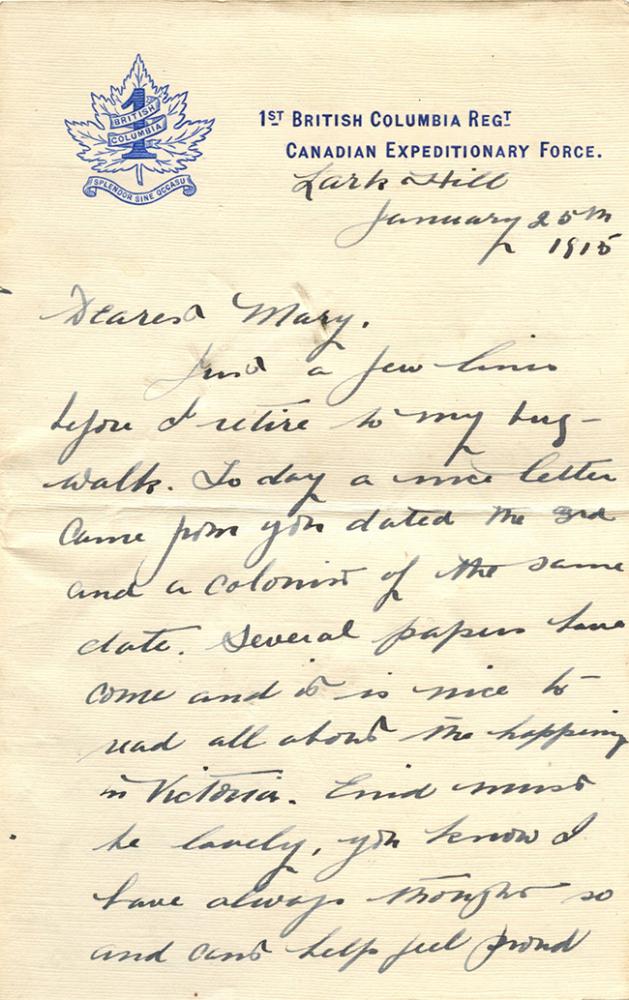 1
BRITISH
COLUMBIA
SPLENDOR SINE OCCASU
1ST BRITISH COLUMBIA REGT
CANADIAN EXPEDITIONARY FORCE.
Lark Hill
January 25th
1915
Dearest Mary.
Just a few lines
before I retire to my bug-
walk. To day a nice letter
came from you dated the 3rd
and a colonist of the same
date. Several papers have
come and it is nice to
read all about the happening
in Victoria. Enid must
be lovely, you know I
have always thought so
and cant help feel proud